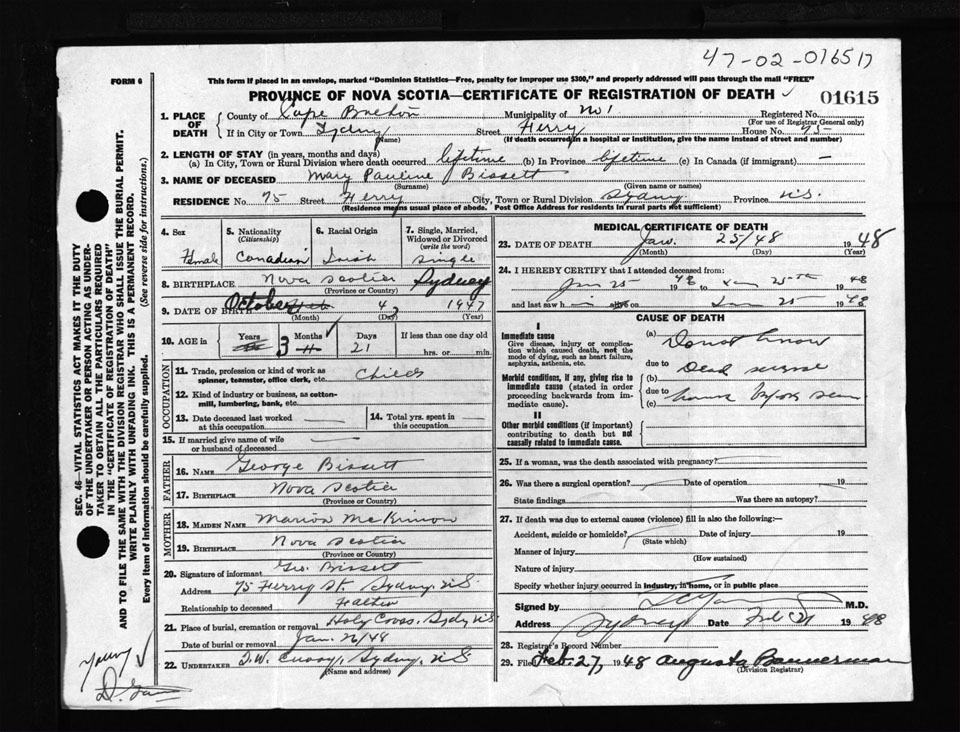 47-02-016517
FORM 6
This form if placed in an envelope, marked "Dominion Statistics—Free, penalty for improper use $300," and properly addressed will pass through the mail "FREE"
PROVINCE OF NOVA SCOTIA—CERTIFICATE OF REGISTRATION OF DEATH
01615
1. PLACE OF DEATH County of Cape Breton Municipality of No 1 Registered No.
(For use of Registrar General only)
If in City or Town Sydney Street Ferry House No. 75
(Name) (If death occurred in a hospital or institution, give the name instead of street and number)
2. LENGTH OF STAY (in years, months and days)
(a) In City, Town or Rural Division where death occurred lifetime (b) In Province lifetime (c) In Canada (if immigrant) —
3. NAME OF DECEASED Mary Pauline Bissett
(Surname) (Given name or names)
RESIDENCE No. 75 Street Ferry City, Town or Rural Division Sydney Province N.S.
(Residence means usual place of abode. Post Office Address for residents in rural parts not sufficient)
4. Sex 5. Nationality 6. Racial Origin 7. Single, Married,
(Citizenship) Widowed or Divorced
(write the word)
Female Canadian Irish Single
8. BIRTHPLACE Nova Scotia Sydney
(Province or Country)
9. DATE OF BIRTH October 4 1947
(Month) (Day) (Year)
10. AGE in Years Months Days If less than one day
3 21 hrs. or min.
OCCUPATION
11. Trade, profession or kind of work as Child
spinner, teamster, office clerk, etc.
12. Kind of industry or business, as cotton-
mill, lumbering, bank, etc.
13. Date deceased last worked
at this occupation
14. Total yrs. spent in
this occupation
15. If married give name of wife
or husband of deceased
FATHER
16. NAME George Bissett
17. BIRTHPLACE Nova Scotia
(Province or Country)
MOTHER
18. MAIDEN NAME Marion McKinnon
19. BIRTHPLACE Nova Scotia
(Province or Country)
20. Signature of informant Geo. Bissett
Address 75 Ferry St. Sydney, N.S.
Relationship to deceased Father
21. Place of burial, cremation or removal Holy Cross, Sydney N.S.
Date of burial or removal Jan. 26/48
22. UNDERTAKER Curry, Sydney, N.S
(Name and address)
MEDICAL CERTIFICATE OF DEATH
23. DATE OF DEATH Jan. 25/48 1948
(Month) (Day) (Year)
24. I HEREBY CERTIFY that I attended deceased from:
Jan 25 1948 to Jan 25th 1948
and last saw h alive on Jan 25 1948
CAUSE OF DEATH
I
Immediate cause
Give disease, injury or complica-
tion which caused death, not the
mode of dying, such as heart failure,
asphyxia, asthenia, etc.
(a) Do not know
due to Dead
Morbid conditions, if any, giving rise to
immediate cause (stated in order
proceeding backwards from im-
mediate cause).
(b)
due to hours before seen
(c)
II
Other morbid conditions (if important)
contributing to death but not
causally related to immediate cause.
25. If a woman, was the death associated with pregnancy?
26. Was there a surgical operation? Date of operation 19
State findings Was there an autopsy?
27. If death was due to external causes (violence) fill in also the following:—
Accident, suicide or homicide? Date of injury 19
(State which)
Manner of injury
(How sustained)
Nature of injury
Specify whether injury occurred in industry, in home, or in public place
Signed by M.D.
Address Sydney Date Feb 21 1948
28. Registrar's Record Number
29. Filed Feb. 27, 1948 Augusta Bannerman
(Division Registrar)
SEC. 46—VITAL STATISTICS ACT MAKES IT THE DUTY
OF THE UNDERTAKER OR PERSON ACTING AS UNDER-
TAKER TO OBTAIN ALL THE PARTICULARS REQUIRED
IN THE "CERTIFICATE OF REGISTRATION OF DEATH"
AND TO FILE THE SAME WITH THE DIVISION REGISTRAR WHO SHALL ISSUE THE BURIAL PERMIT.
WRITE PLAINLY WITH UNFADING INK. THIS IS A PERMANENT RECORD.
Every item of information should be carefully supplied. (See reverse side for instructions.)
Young